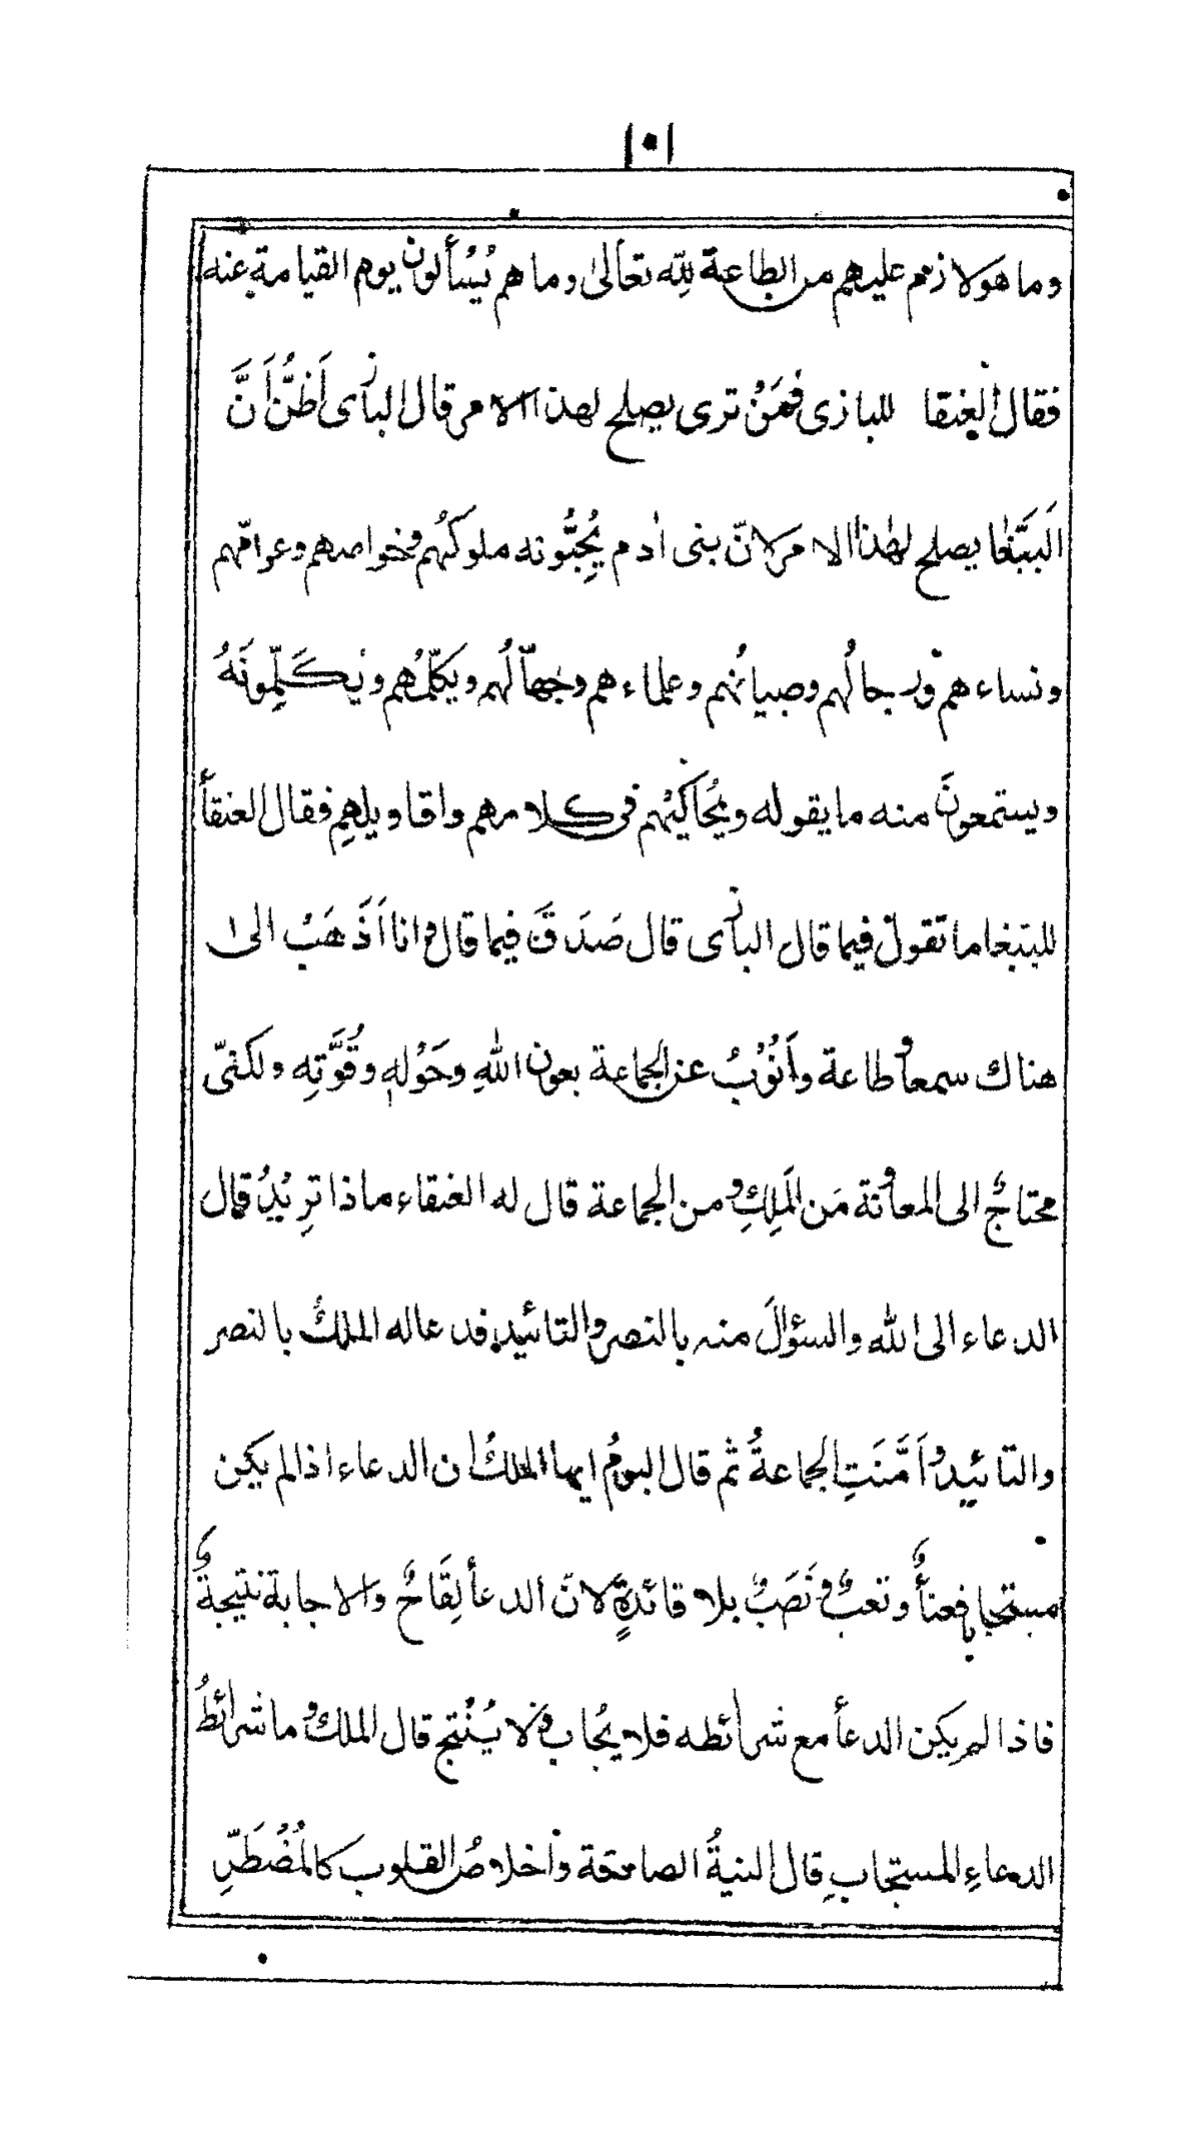 ١٠١
وما هو لازم عليهم من الطاعة لِلّه تعالىٰ وما هم يُسْأَلون يوم القيامة عنه
فقال العنقا للبازى فمَنْ ترى يصلح لهذا الامر قال البازى اَظُنُّ اَنَّ
اَلببَّغا يصلح لهٰذا الامر لانّ بنى اٰدم يُحِبُّونه ملوكُهم وخواصهم وعوامّهم
ونساءهم ورجالُهم وصبيانُهم وعلماءهم وجهّالُهم ويكلّمُهم ويُكَلِّمُونَهُ
ويستمعونَ منه ما يقوله ويُحاكيْهم فى كلامهم واقاويلهِم فقال العنقأ
للببغا ما تقول فيما قال البازى قال صَدَقَ فيما قال وانا اَذْهَبُ الىٰ
هناك سمعاً وطاعة واَنُوْبُ عن الجماعة بعون اللّٰهِ وحَوْلهٖ وقُوَّتِهٖ ولكنّى
محتاجٌ الى المعاونة مَن المَلِكِ ومن الجماعة قال له العنقاء ماذا ترِيْدُ قال
الدعاء الى اللّٰه والسؤالَ منه بالنصر والتائيد فدعا له الملكُ بالنصر
والتائيد واَمَّنَتِ الجماعةُ ثم قال البومُ ايها الملكُ ان الدعاء اذا لم يكن
مستجابا فعنأٌ وتعبٌ ونَصَبٌ بلا فائدةٍ لانّ الدعأ لِقَاحٌ والاجابة نتيجةٌ
فاذا لم يكن الدعأ مع شرائطه فلا يُجاب ولا يُنْتج قال الملك وما شرائطُ
الدعاءِ المستجابِ قال النيةُ الصادقة واخلاصُ القلوب كالمُضْطَرِّ